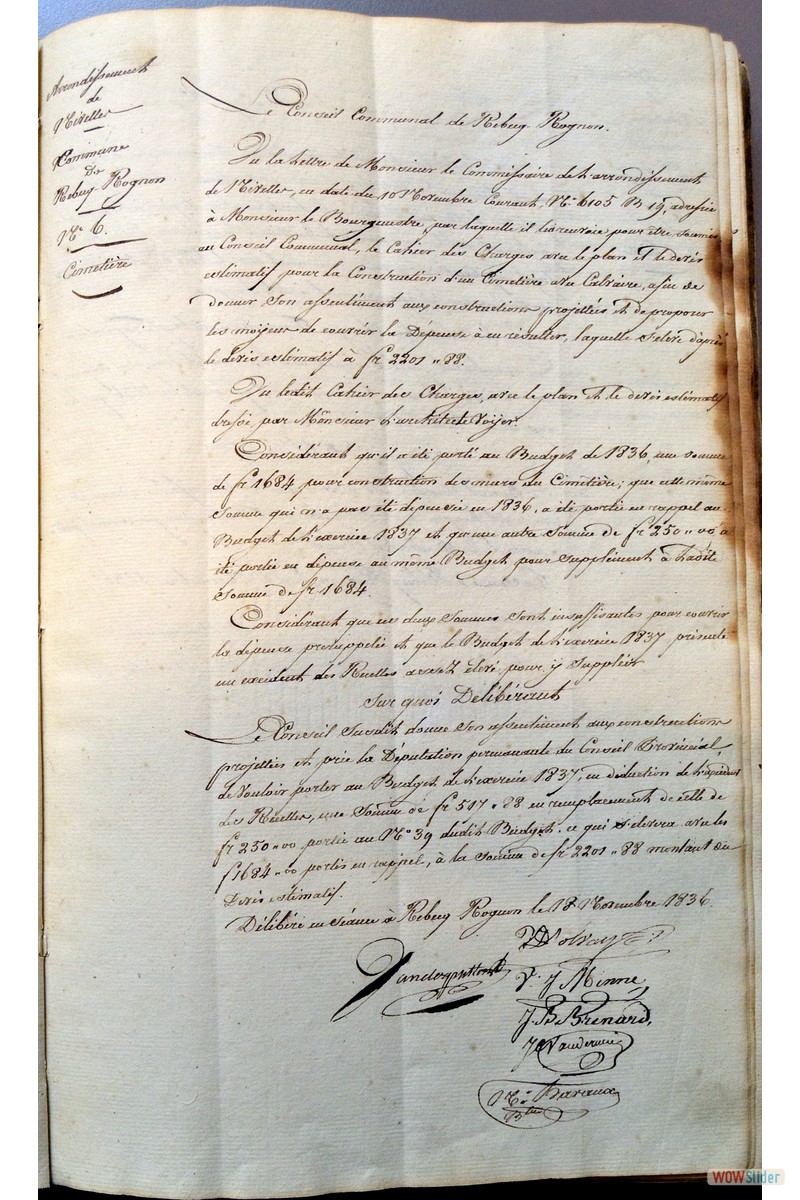 Arrondissement
de
Nivelles
Commune
de
Rebecq Rognon
N° 6.
Cimetière
Le Conseil Communal de Rebecq Rognon.
Vu la lettre de Monsieur le Commissaire de l'arrondissement
de Nivelles, en date du 10 Novembre Courant, N° 6105 B 19, adressée
à Monsieur le Bourgmestre, par laquelle il lui envoie, pour être soumis
au Conseil Communal, le Cahier des Charges avec le plan et le devis
estimatif pour la Construction d'un Cimetière avec Calvaire, afin de
donner son assentiment aux constructions projettées et de proposer
les moyens de couvrir la Dépense à en résulter, laquelle s'élève d'après
le devis estimatif à fr 2201 " 88.
Vu ledit Cahier des Charges, avec le plan et le devis estimatif
dressé par Monsieur l'architecte Voyer.
Considérant qu'il a été porté au Budget de 1836, une somme
de fr 1684 pour construction des murs du Cimetière; que cette même
somme qui n'a pas été dépensée en 1836, a été portée en rappel au
Budget de l'exercice 1837 et qu'une autre Somme de fr 250 " 00 a
été portée en dépense au même Budget pour supplément à ladite
Somme de fr 1684.
Considérant que ces deux Sommes sont insuffisantes pour couvrir
la dépense prérappelée et que le Budget de l'exercice 1837 présente
un excédent des Recettes assez élevé pour y suppléer
Sur quoi Délibérant
Le Conseil Susdit donne son assentiment aux constructions
projettées et prie la Députation permanente du Conseil Provincial,
de vouloir porter au Budget de l'exercice 1837, en déduction de l'excédent
des Recettes, une Somme de fr 517 " 88 en remplacement de celle de
fr 250 " 00 portée au N° 39 dudit Budget, ce qui s'élevera avec les
f 1684 " 00 portés en rappel, à la Somme de fr 2201 " 88 montant du
Devis estimatif.
Délibéré en séance à Rebecq Rognon le 18 Novembre 1836.
J Minne
J. B. Brenard,
WOWSlider